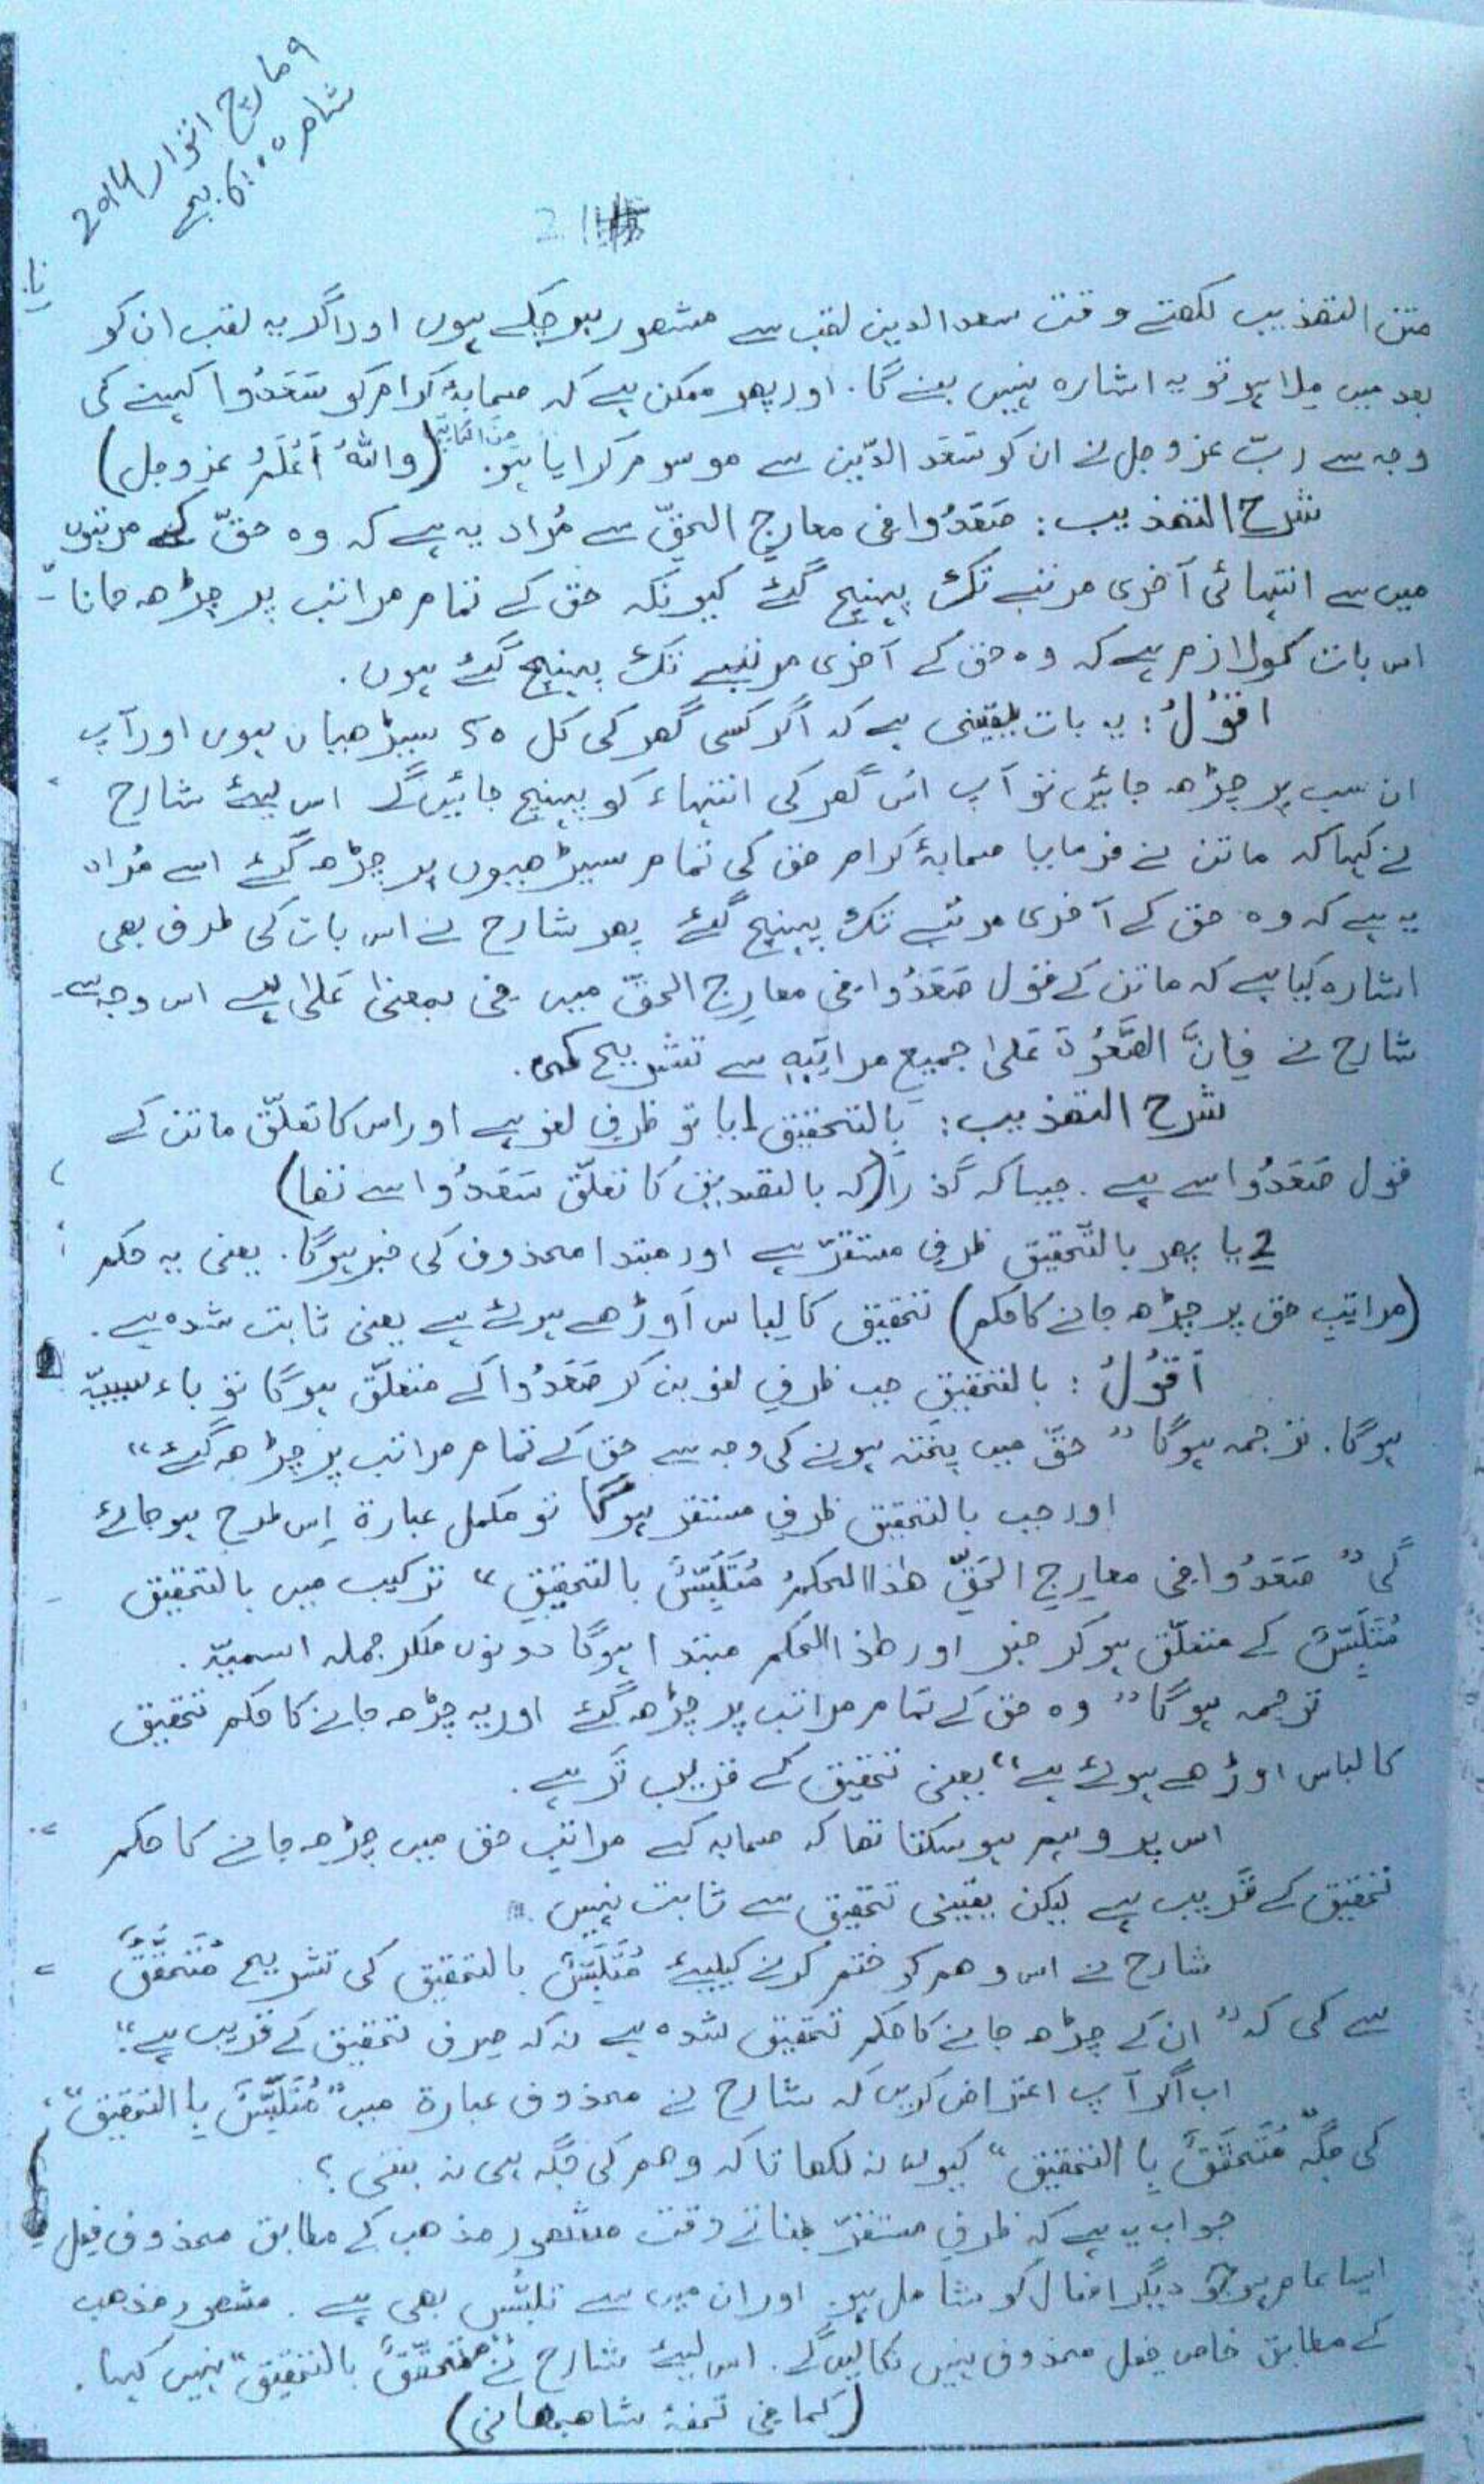 9 مارچ اتوار 2014
شام 6:00 بجے
21
متن التھذیب لکھتے وقت سعد الدین لقب سے مشھور ہوچکے ہوں اور اگر یہ لقب ان کو
بعد میں ملا ہو تو یہ اشارہ نہیں بنے گا. اور پھر ممکن ہے کہ صحابۂ کرام کو سَعَدُوا کہنے کی
وجہ سے ربّ عزوجل نے ان کو سَعَد الدّین سے موسوم کرایا ہو. (واللهُ اَعْلَمُ عزوجل)
شرح التھذیب: صَعَدُوا فی معارِج الحقّ سے مُراد یہ ہے کہ وہ حقّ کے مرتبوں
میں سے انتہائی آخری مرتبے تک پہنچ گئے کیونکہ حق کے تمام مراتب پر چڑھ جانا
اس بات کو لازم ہے کہ وہ حق کے آخری مرتبے تک پہنچ گئے ہوں.
اقُوْلُ: یہ بات یقینی ہے کہ اگر کسی گھر کی کل 50 سیڑھیاں ہوں اور آپ
ان سب پر چڑھ جائیں تو آپ اُس گھر کی انتہاء کو پہنچ جائیں گے اس لیئے شارح
نے کہا کہ ماتن نے فرمایا صحابۂ کرام حق کی تمام سیڑھیوں پر چڑھ گئے اسے مُراد
یہ ہے کہ وہ حق کے آخری مرتبے تک پہنچ گئے پھر شارح نے اس بات کی طرف بھی
اشارہ کیا ہے کہ ماتن کے قول صَعَدُوا فی معارِج الحقّ میں فی بمعنٰی عَلٰی ہے اس وجہ سے
شارح نے فَاِنَّ الصُّعُوْدَ عَلٰی جمیعِ مراتِبِہٖ سے تشریح کی.
شرح التھذیب: بالتحقیق 1 یا تو ظرفِ لغو ہے اور اس کا تعلّق ماتن کے
قول صَعَدُوا سے ہے. جیسا کہ گذرا (کہ بالتصدیق کا تعلّق سَعَدُوا سے تھا)
2 یا پھر بالتّحقیق ظرفِ مستقرّ ہے اور مبتدا محذوف کی خبر ہوگا. یعنی یہ حکم
(مراتبِ حق پر چڑھ جانے کا حکم) تحقیق کا لِباس اَوڑھے ہوئے ہے یعنی ثابت شدہ ہے.
اَقُوْلُ: بالتحقیقِ جب ظرفِ لغو بن کر صَعَدُوا کے متعلّق ہوگا تو باء سببیّہ
ہوگا. ترجمہ ہوگا ”حقّ میں پختہ ہونے کی وجہ سے حق کے تمام مراتب پر چڑھ گئے“
اور جب بالتحقیق ظرفِ مستقر ہوگا تو مکمل عبارۃ اِس طرح ہوجائے
گی ”صَعَدُوا فی معارِجِ الحَقِّ ھٰذا الحکمُ مُتَلَبِّسٌ بالتحقیقِ“ ترکیب میں بالتحقیق
مُتَلَبِّسٌ کے متعلّق ہوکر خبر اور ھٰذا الحکم مبتدا ہوگا دونوں ملکر جملہ اسمیّہ.
ترجمہ ہوگا ”وہ حق کے تمام مراتب پر چڑھ گئے اور یہ چڑھ جانے کا حکم تحقیق
کا لباس اوڑھے ہوئے ہے“ یعنی تحقیق کے قریب تَر ہے.
اس پر وہم ہوسکتا تھا کہ صحابہ کے مراتبِ حق میں چڑھ جانے کا حکم
تحقیق کے قریب ہے لیکن یقینی تحقیق سے ثابت نہیں
شارح نے اس وھم کو ختم کرنے کیلیئے مُتَلَبِّسٌ بالتحقیق کی تشریح مُتَحَقِّقٌ
سے کی کہ ”ان کے چڑھ جانے کا حکم تحقیق شدہ ہے نہ کہ صِرف تحقیق کے قریب ہے“
اب اگر آپ اعتراض کریں کہ شارح نے محذوف عبارۃ میں ”مُتَلَبِّسٌ بِا التحقیق“
کی جگہ مُتَحَقِّقٌ بِا التحقیق“ کیوں نہ لکھا تاکہ وھم کی جگہ ہی نہ بنتی؟
جواب یہ ہے کہ ظرفِ مستقرّ بناتے وقت مشھور مذھب کے مطابق محذوف فعل
ایسا عام ہو جو دیگر افعال کو شامل ہو. اور ان میں سے تلبُّس بھی ہے. مشھور مذھب
کے مطابق خاص فعل محذوف نہیں نکالیں گے. اس لیئے شارح نے ”مُتحقّقٌ بالتحقیق“ نہیں کہا.
(کما فی تحفۂ شاھجھانی)